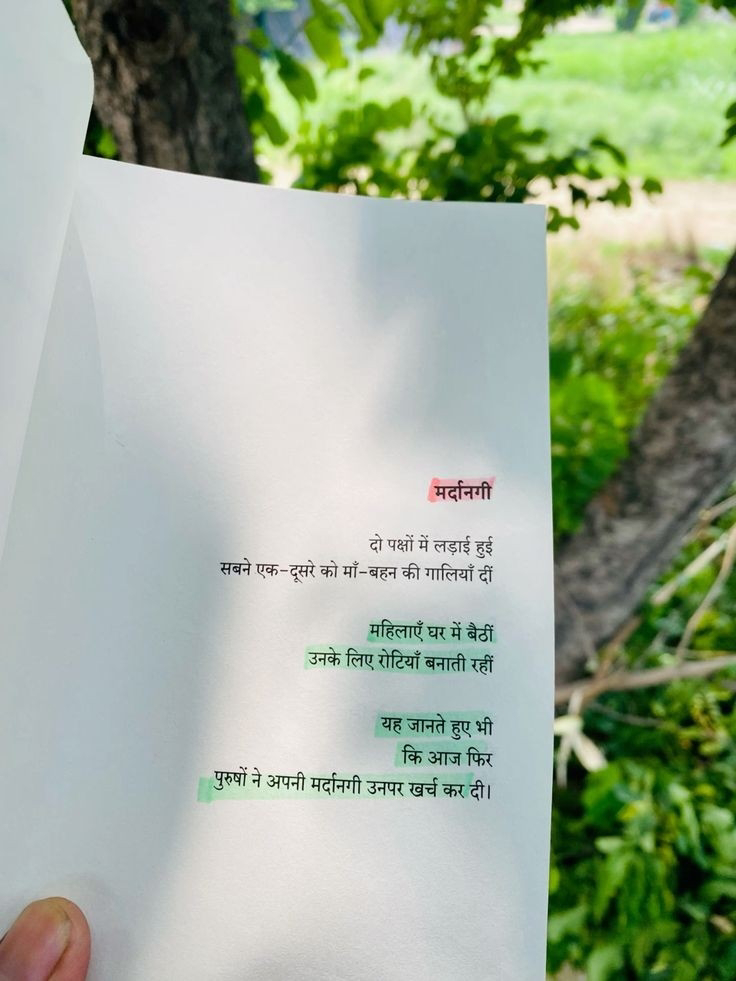 मर्दानगी
दो पक्षों में लड़ाई हुई
सबने एक-दूसरे को माँ-बहन की गालियाँ दीं
महिलाएँ घर में बैठीं
उनके लिए रोटियाँ बनाती रहीं
यह जानते हुए भी
कि आज फिर
पुरुषों ने अपनी मर्दानगी उनपर खर्च कर दी।